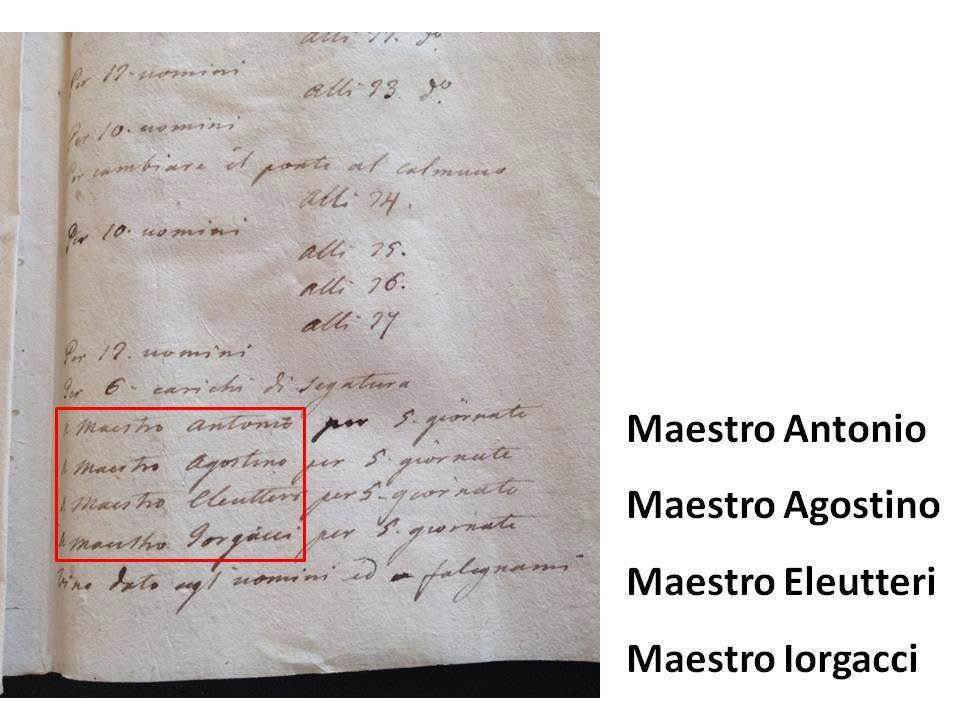 alli
Per 12. uomini
alli 23. do
Per 10. uomini
Per cambiare il ponte al
alli 24.
Per 10. uomini
alli 25.
alli 26.
alli 27
Per 12. uomini
Per 6 - carichi di segatura
Maestro Antonio per 5. giornate
Maestro Agostino per 5. giornate
Maestro Eleutteri per 5 - giornate
Maestro Iorgacci per 5. giornate
Vino dato agl'uomini ed a falegnami
Maestro Antonio
Maestro Agostino
Maestro Eleutteri
Maestro Iorgacci